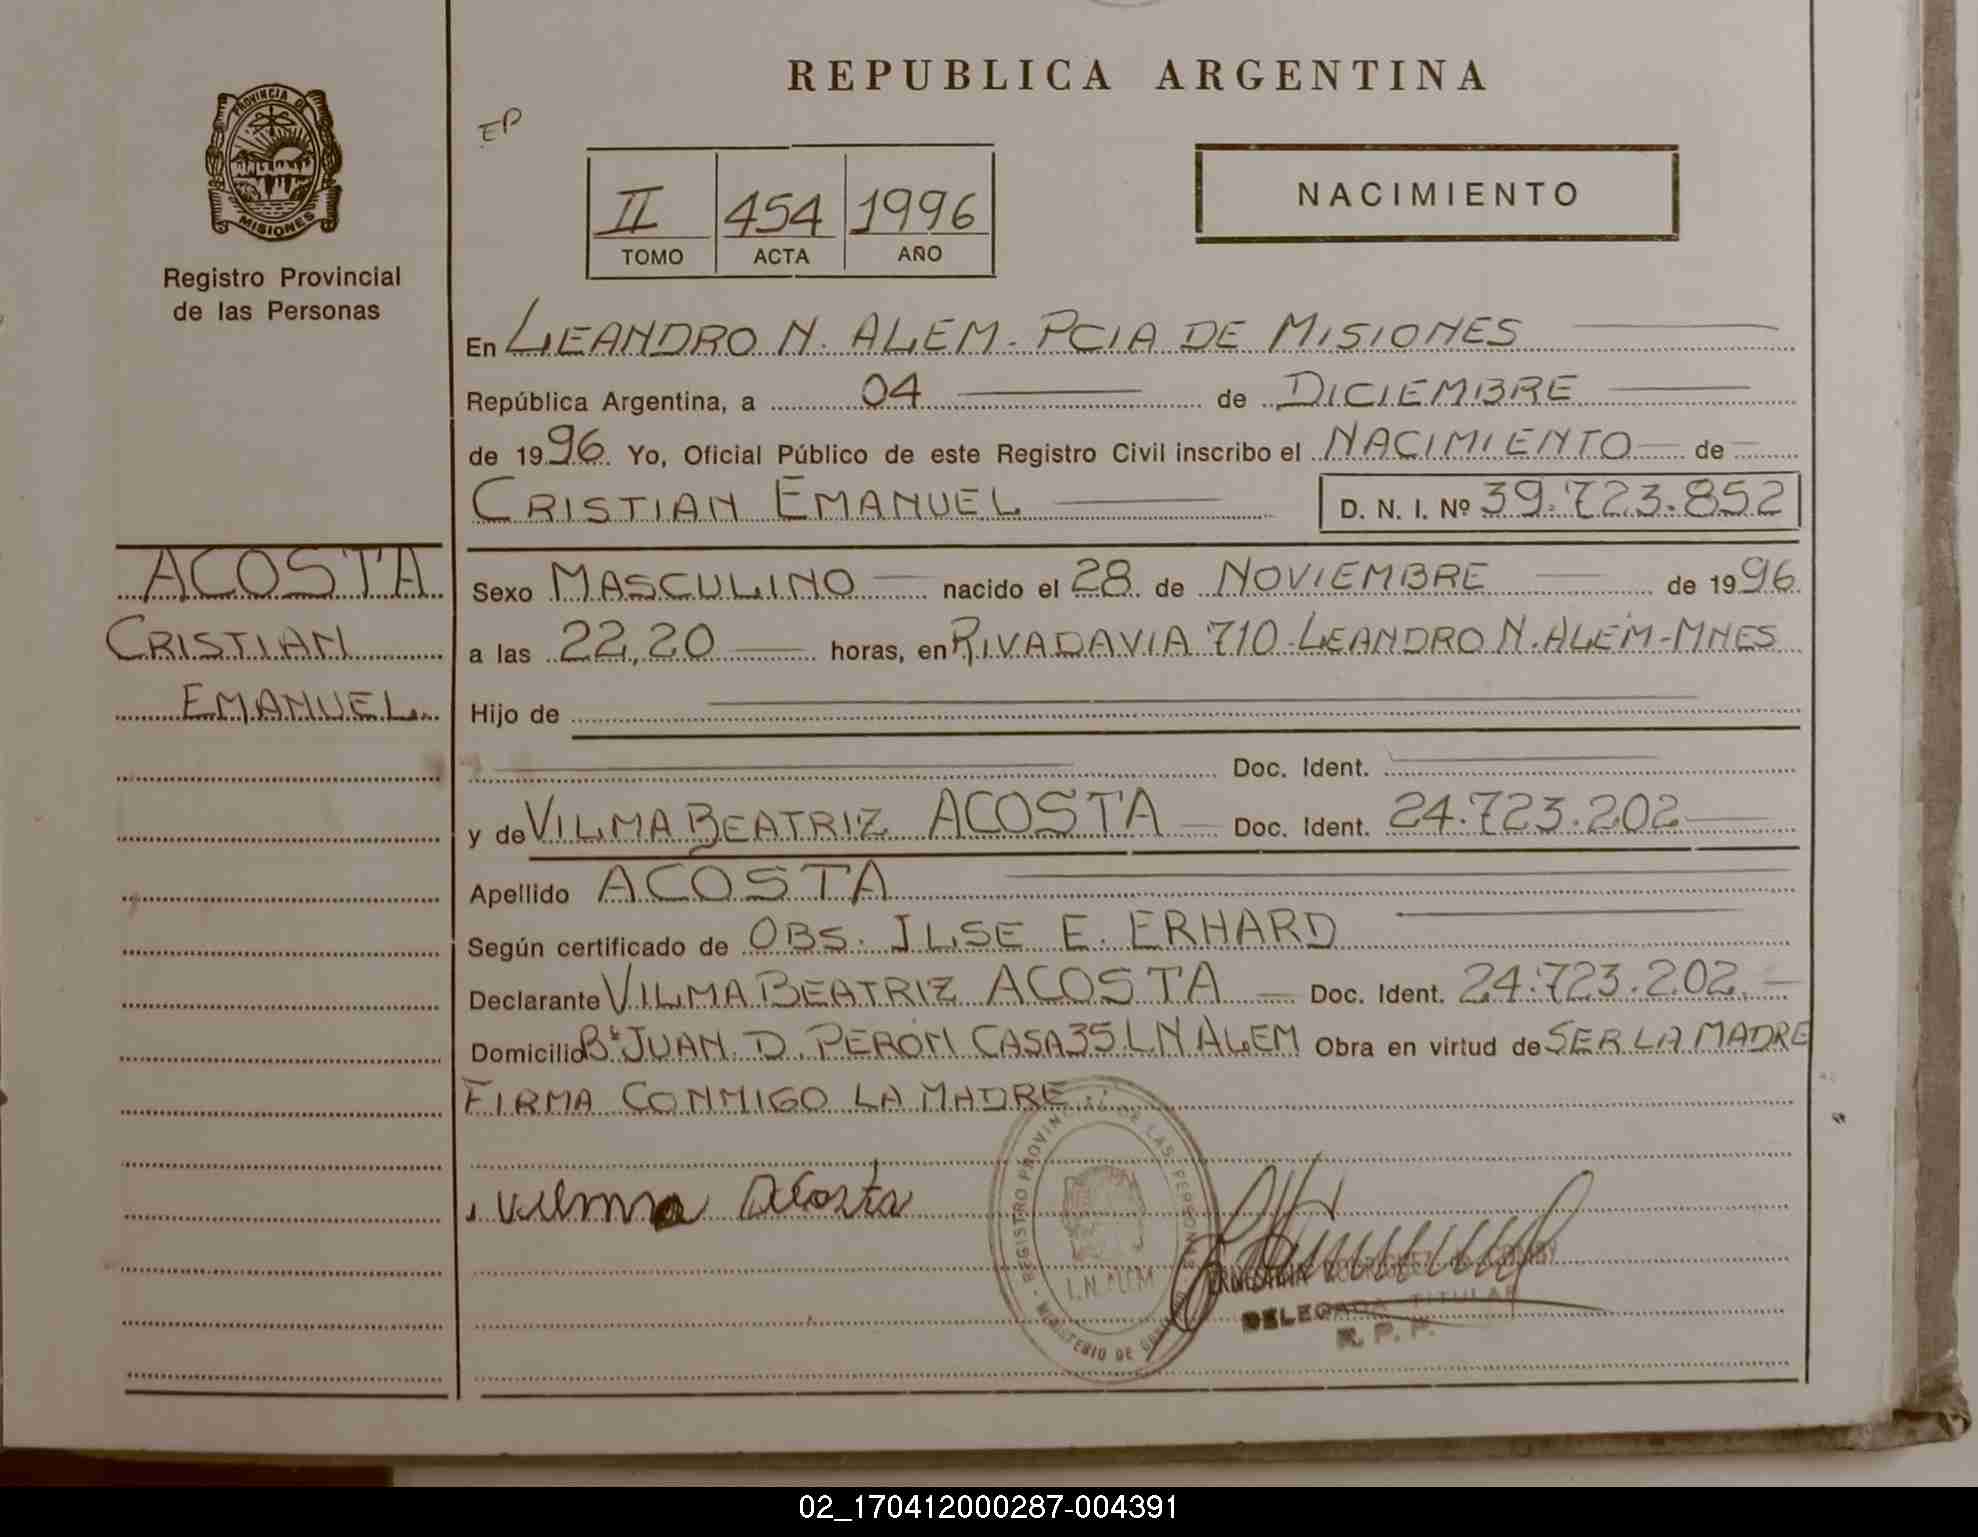 REPUBLICA ARGENTINA
PROVINCIA DE MISIONES
Registro Provincial
de las Personas
EP
II 454 1996
TOMO ACTA AÑO
NACIMIENTO
En LEANDRO N. ALEM - PCIA DE MISIONES
República Argentina, a 04 de DICIEMBRE
de 1996 Yo, Oficial Público de este Registro Civil inscribo el NACIMIENTO de
CRISTIAN EMANUEL D. N. I. Nº 39.723.852
ACOSTA
CRISTIAN
EMANUEL
Sexo MASCULINO nacido el 28 de NOVIEMBRE de 1996
a las 22,20 horas, en RIVADAVIA 710-LEANDRO N. ALEM-MNES
Hijo de
Doc. Ident.
y de VILMA BEATRIZ ACOSTA Doc. Ident. 24.723.202
Apellido ACOSTA
Según certificado de OBS. ILSE E. ERHARD
Declarante VILMA BEATRIZ ACOSTA Doc. Ident. 24.723.202
Domicilio Bº JUAN D. PERON CASA 35 L N ALEM Obra en virtud de SER LA MADRE
FIRMA CONMIGO LA MADRE.
Vilma Acosta
REGISTRO PROVINCIAL DE LAS PERSONAS
L. N. ALEM
MINISTERIO DE
DELEGADA TITULAR
R. P. P.
02_170412000287-004391